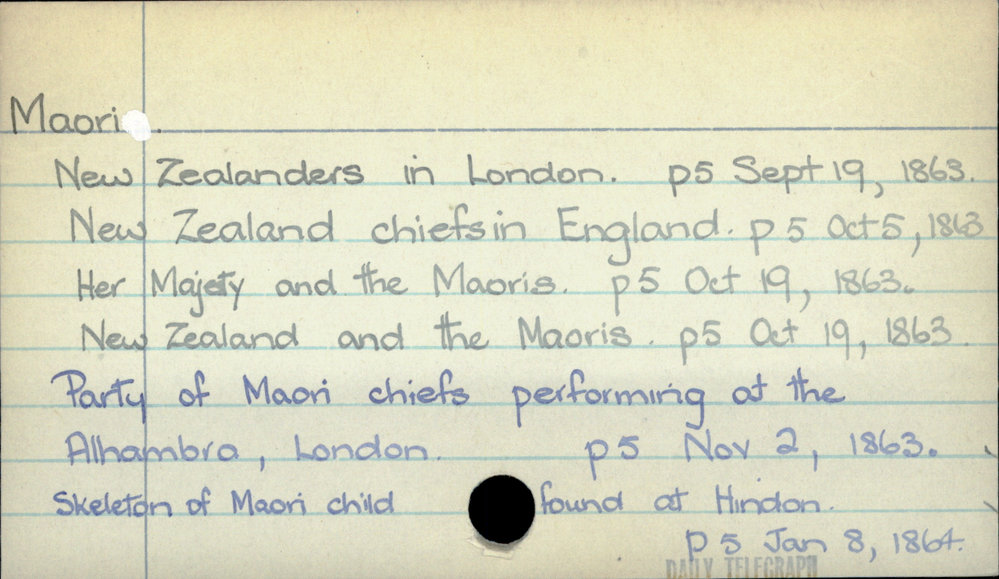 Maori .
New Zealanders in London. p5 Sept 19, 1863.
New Zealand chiefs in England. p 5 Oct 5, 1863
Her Majety and the Maoris. p5 Oct 19, 1863.
New Zealand and the Maoris. p5 Oct 19, 1863.
Party of Maori chiefs performing at the
Alhambra, London. p5 Nov 2, 1863.
Skeleton of Maori child found at Hindon.
p 5 Jan 8, 1864.
DAILY TELEGRAPH